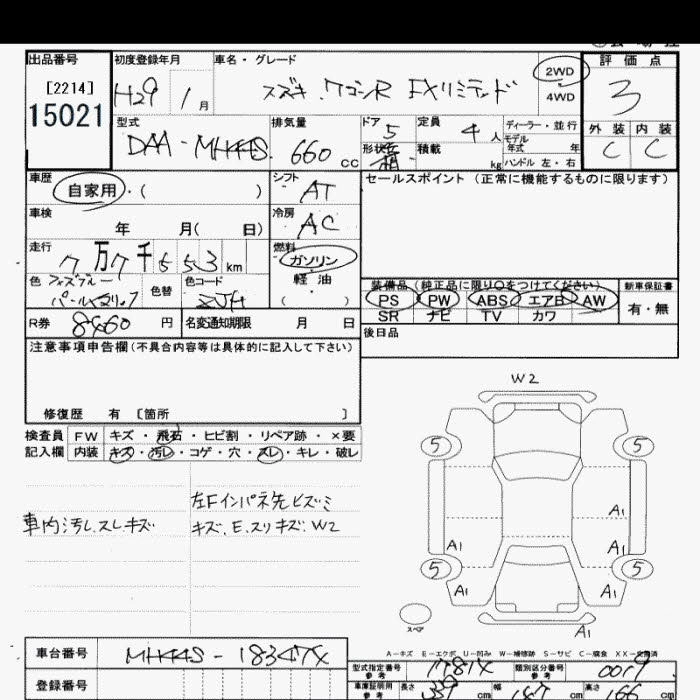 出品番号
[2214]
15021
初度登録年月
H29 1月
車名・グレード
スズキ ワゴンR FXリミテッド
2WD
4WD
評価点
3
外装 内装
C C
型式
DAA-MH44S
排気量
660 cc
ドア 5
形状 箱
定員 4人
積載 kg
ディーラー・並行
モデル年式 年
ハンドル 左・右
車歴
自家用・( )
車検
年 月( 日)
走行
7万7千553km
シフト
AT
冷房
AC
燃料
ガソリン
軽油
( )
色
パール
色替
色コード
ZJH
R券 8460円
名変通知期限 月 日
セールスポイント (正常に機能するものに限ります)
装備品(純正品に限り○をつけてください)
PS PW ABS エアB AW
SR ナビ TV カワ
新車保証書
有・無
後日品
注意事項申告欄(不具合内容等は具体的に記入して下さい)
修復歴 有 [箇所 ]
検査員 FW キズ・飛石・ヒビ割・リペア跡・×要
記入欄 内装 キズ・汚レ・コゲ・穴・スレ・キレ・破レ
車内汚レ.スレキズ
左Fインパネ先ヒズミ
キズ、E.スリキズ.W2
W2
5 5
A1
A1 A1
5 5
A1 A1
A1
スペア
A-キズ E-エクボ U-凹み W-補修跡 S-サビ C-腐食 XX-交換済
車台番号
MH44S-18347X
登録番号
型式指定番号
参考
1781X
類別区分番号
参考
0019
車庫証明用
参考
長さ 339cm 幅 147cm 高さ 166cm